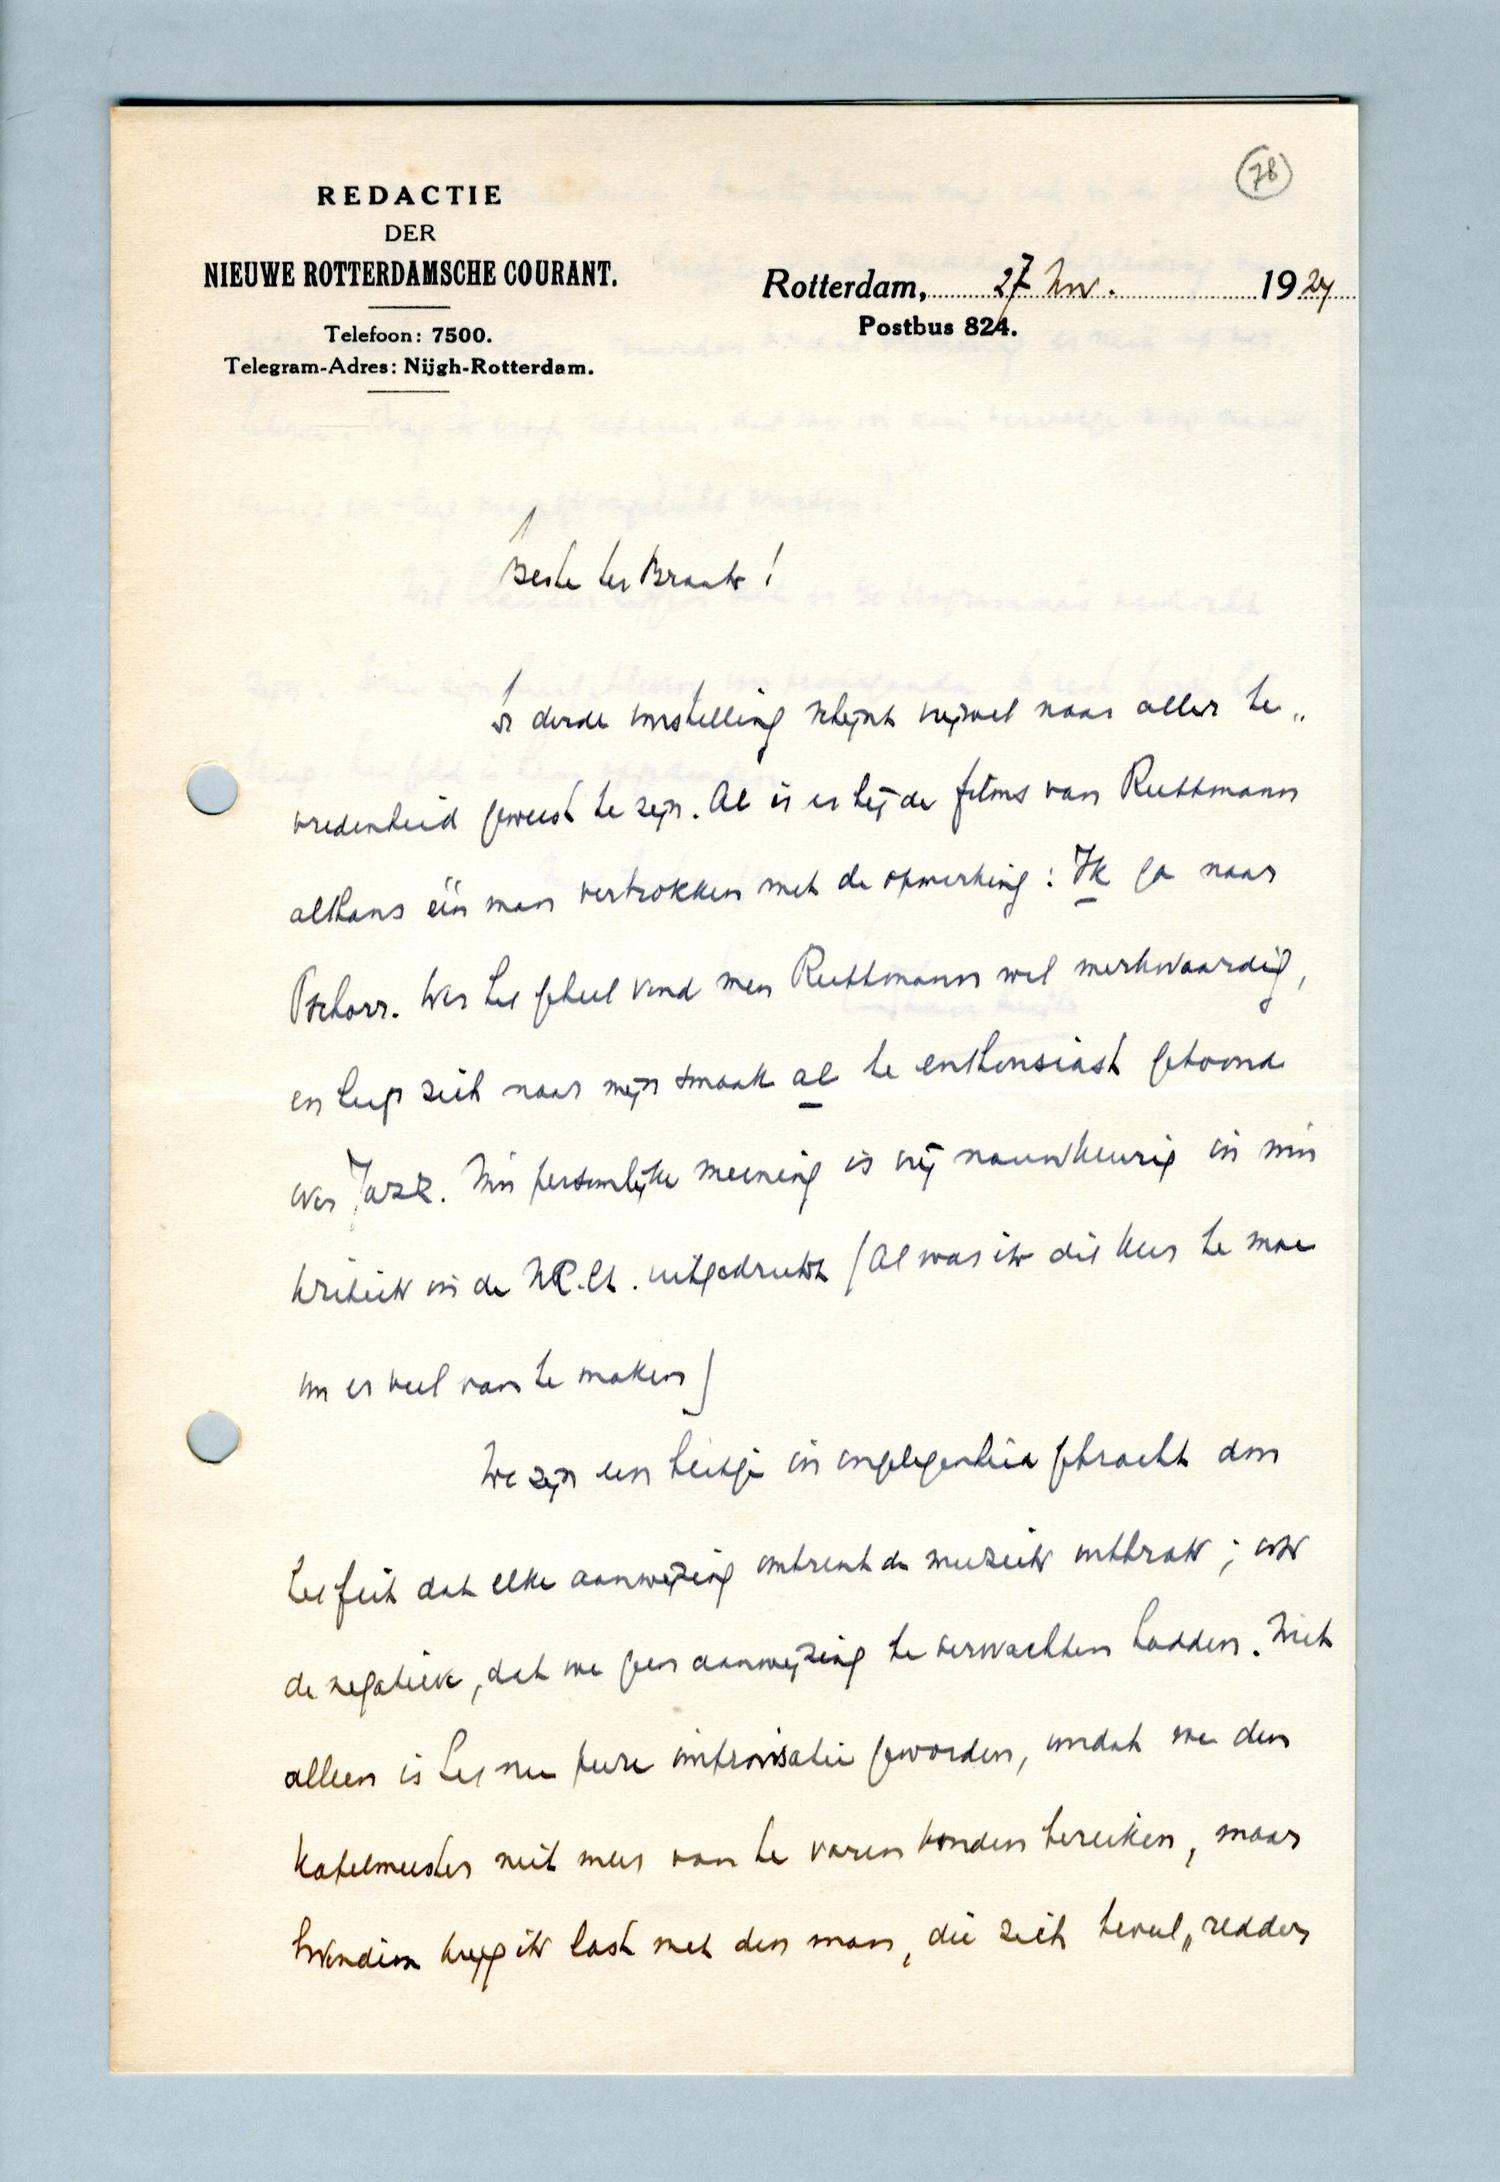 78
REDACTIE
DER
NIEUWE ROTTERDAMSCHE COURANT.
Telefoon: 7500.
Telegram-Adres: Nijgh-Rotterdam.
Rotterdam, 27 Nov. 1927
Postbus 824.
Beste ter Braak!
De derde voorstelling schijnt vrijwel naar aller te„
vredenheid geweest te zijn. Al is er bij de films van Ruttmann
althans één man vertrokken met de opmerking: Ik ga naar
Pschorr. Over het geheel vond men Ruttmann wel merkwaardig,
en heeft zich naar mijn smaak al te enthousiast getoond
over Jazz. Mijn persoonlijke meening is vrij nauwkeurig in mijn
kritiek in de N.R.Ct. uitgedrukt (Al was ik dit keer te moe
om er veel van te maken)
We zijn een beetje in ongelegenheid gebracht door
het feit dat elke aanwijzing omtrent de muziek ontbrak; ook
de negatieve, dat we geen aanwijzing te verwachten hadden. Niet
alleen is het nu pure improvisatie geworden, omdat we den
kapelmeester niet meer van te voren konden bereiken, maar
bovendien kreeg ik last met den man, die zich heel „redders